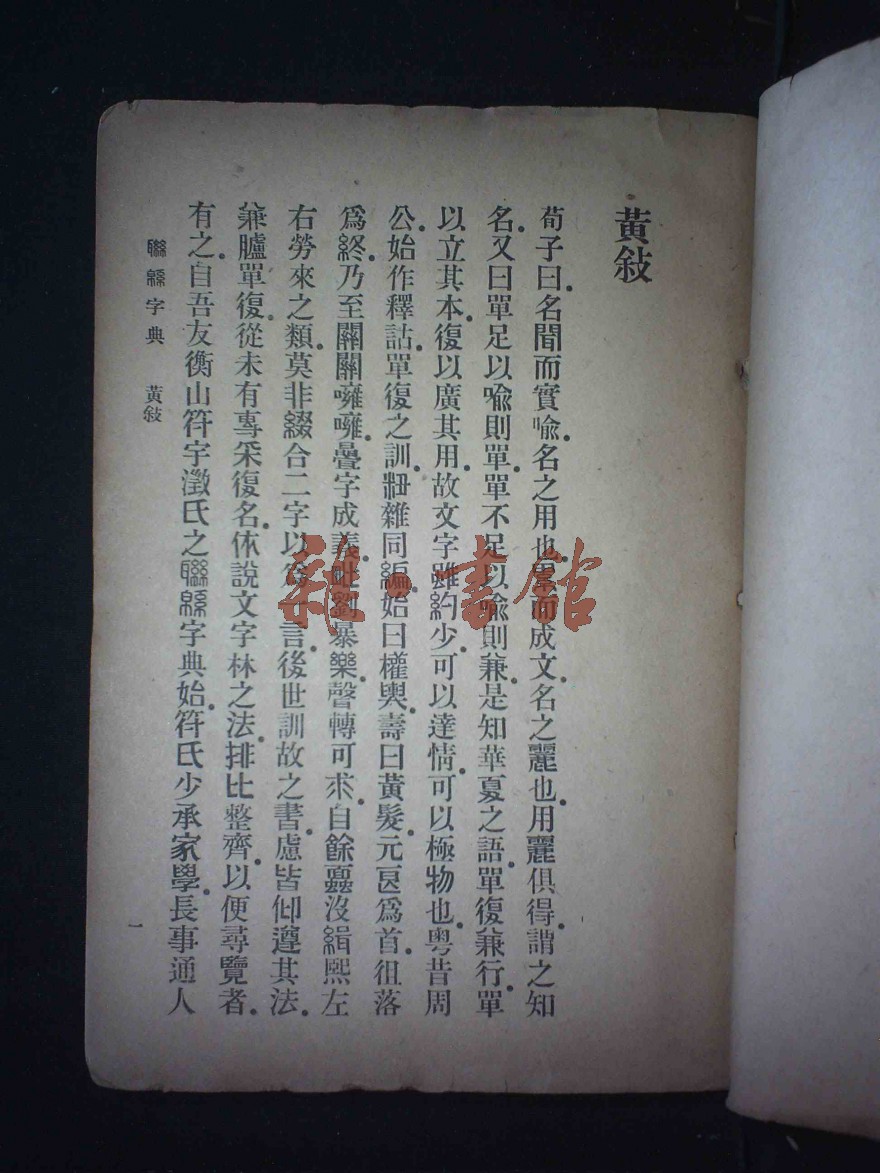 黃敍
荀子曰。名聞而實喻。名之用也。累而成文。名之麗也。用麗俱得。謂之知
名。又曰單足以喻則單。單不足以喻則兼。是知華夏之語。單復兼行。單
以立其本。復以廣其用。故文字雖約少。可以達情。可以極物也。粵昔周
公。始作釋詁。單復之訓。雜同編。始曰權輿。壽曰黃髮。元良爲首。徂落
爲終。乃至關關噰噰。疊字成義。毗劉暴樂。聲轉可求。自餘亹沒緝熙左
右勞來之類。莫非綴合二字以爲一言。後世訓故之書。慮皆仰遵其法。
兼臚單復。從未有專采復名。依說文字林之法。排比整齊。以便尋覽者。
有之。自吾友衡山符宇澂氏之聯緜字典始。符氏少承家學。長事通人
聯緜字典 黃敍
一
雜·書館